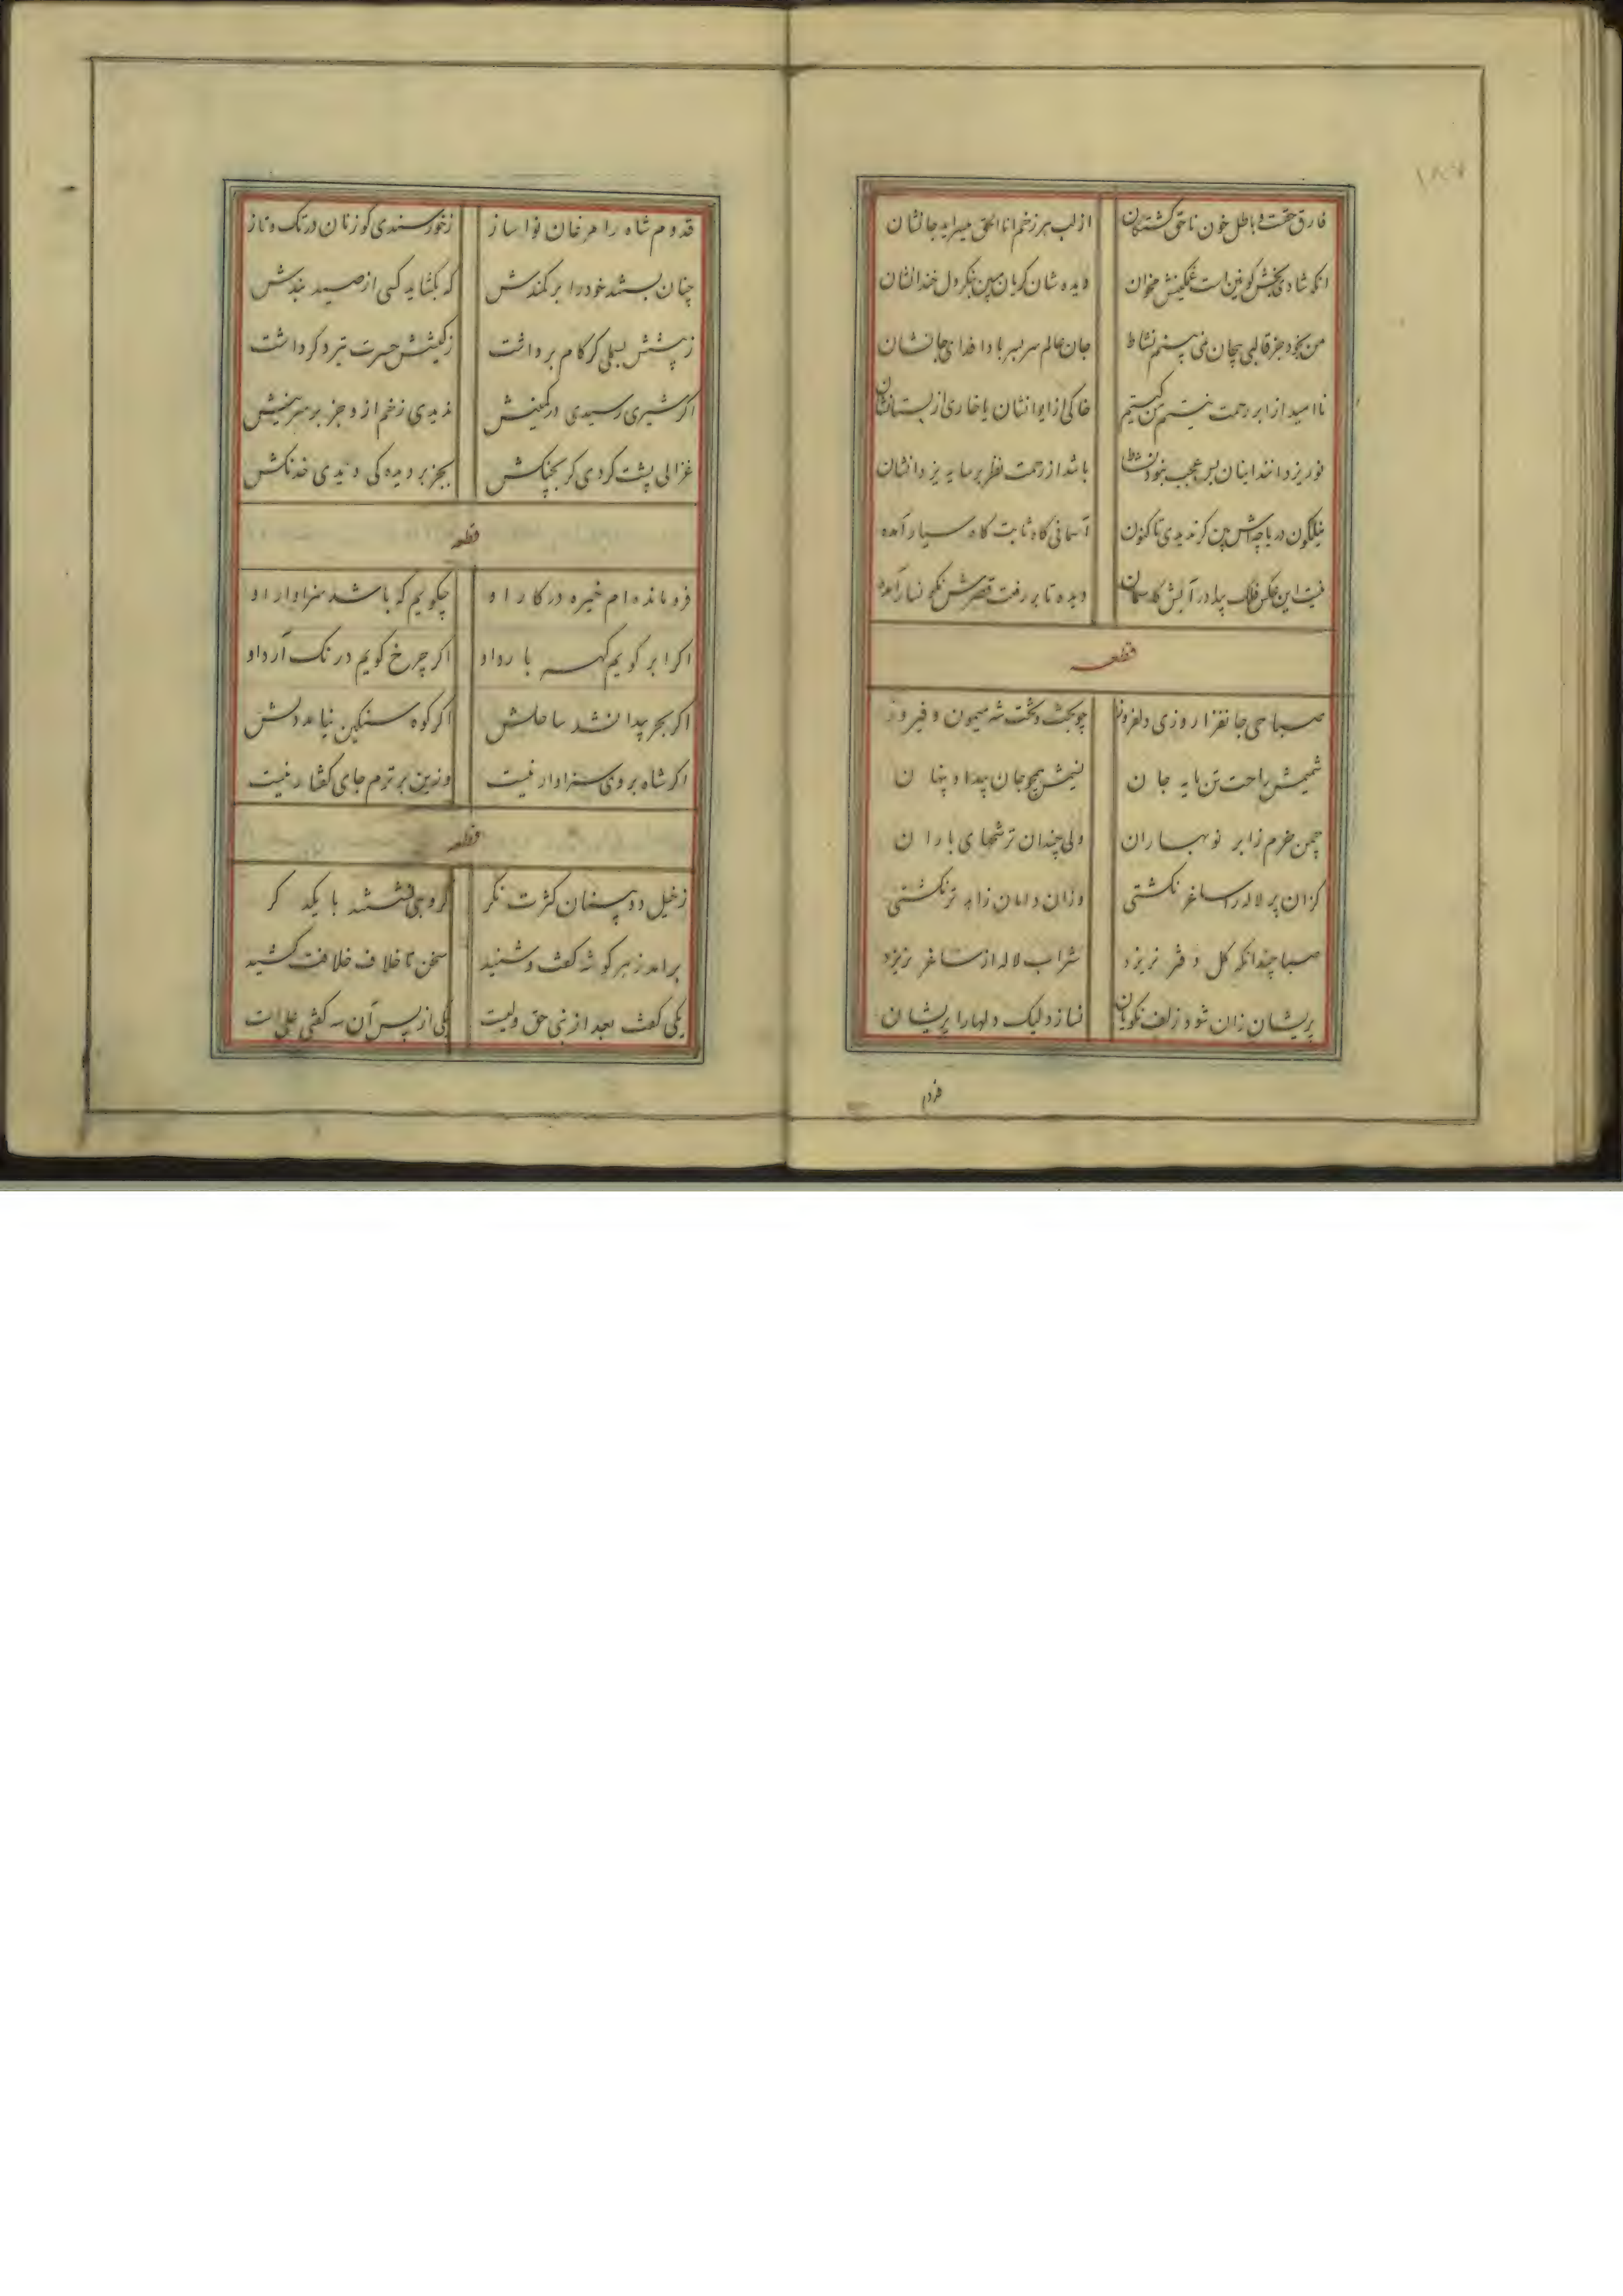 فارق حقست و باطل خون ناحق کشتکان از لب هر زخم انا الحق میسراید جانشان
انکه شادی بخش کونین است غمکینش مخوان دیده شان کریان مبین بنکر دل خندانشان
من بخود جز قالبی بیجان نمی بینم نشاط جان عالم سر بسر بادا فدای جانشان
ناامید از ابر رحمت نیستم من کیستم خاکی از ایوانشان یا خاری از بستانشان
نور یزدانند اینان بس عجب نبود نشاط باشد از رحمت نظر بر سایه یزدانشان
نیلکون دریاچه اش بین کر ندیدی تا کنون آسمانی کاه ثابت کاه سیار آمده
نیست این عکس فلک پیدا در آبش کاسمان دیده تا بر رفعت قصرش نکونسار آمده
قطعه
صباحی جانفزا روزی دلفروز چو بخت و تخت شه میمون و فیروز
شمیمش راحت تن مایه جان نسیمش همچو جان پیدا و پنهان
چمن خرم ز ابر نوبهاران ولی چندان ترشحهای باران
کزان پر لاله را ساغر نکشتی وزان دامان زاهد تر نکشتی
صبا چندانکه کل دفتر نریزد شراب لاله از ساغر نریزد
پریشان زان شود زلف نکویان نسازد لیک دلها را پریشان
قدوم
قدوم شاه را مرغان نواساز ز خورسندی کوزنان در تک و تاز
چنان بستند خود را بر کمندش که نکشاید کسی از صید بندش
ز پشتش بسملی کر کام برداشت ز کیشش حسرت تیر دکر داشت
اکر شیری رسیدی در کمینش ندیدی زخم از و جز بر سرینش
غزالی پشت کردی کر بجنکش بجز بر دیده کی دیدی خدنکش
قطعه
فرو مانده ام خیره در کار او چکویم که باشد سزاوار او
اکر ابر کویم کهر بارد او اکر چرخ کویم درنک آرد او
اکر بحر پیدا نشد ساحلش اکر کوه سنکین نیامد دلش
اکر شاه بر وی سزاوار نیست وزین برترم جای کفتار نیست
قطعه
ز خیل دو بینان کثرت نکر کروهی نشستند با یکدکر
برامد ز هر کوشه کفت و شنید سخن تا خلاف خلافت کشید
یکی کفت بعد از نبی حق ولیست یکی از پس آن سه کفتی علی است